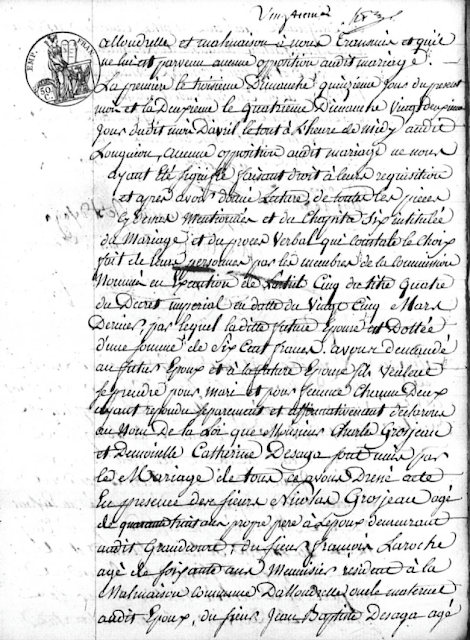 EMP. FRAN.
50
C.
allondrelle et malmaison à nous transmis et qu'il
ne lui est parvenu aucune opposition audit mariage
La premiere le troisieme Dimanche quinzieme Jour du present
mois et la Deuxieme le quatrieme Dimanche Vingt deuxieme
Jour dudit mois Davril le tout à L'heure de midy audit
Longuion, aucune opposition audit mariage ne nous
ayant Eté signifié faisant droit à leurs requisition
et après avoir donné Lecture, de toutes les pieces
cy dessus Mentionnées et du Chapitre Six intitulée
du Mariage, et du proces Verbal qui constate le Choix
fait de leurs personnes par les membres de la Commission
Nommée en Execution de Cinq du titre quatre
du Decret imperial en datte du Vingt Cinq Mars
Dernier, par lequel la ditte future Epouse est Dottée
d'une somme de Six Cent francs, avons demandé
au futur Epoux et à la future Epouse s'ils veulent
se prendre pour mari et pour femme Chacun Deux
ayant repondu separement et affirmativement declarons
au Nom de la Loi que Monsieur Charle Grosjean
et Demoiselle Catherine Desaga sont unis par
le Mariage de tous ce avons Dressé acte
En presence des sieurs Nicolas Grosjean agé
de quarante huit ans propre pere à Lepoux demeurant
audit Grandcourt, du sieur francois Laroche
agé de soixante ans Menuisier résident à la
Malmaison Commune Dallondrelle oncle maternel
audit Epoux, du sieur Jean Baptiste Desaga agé